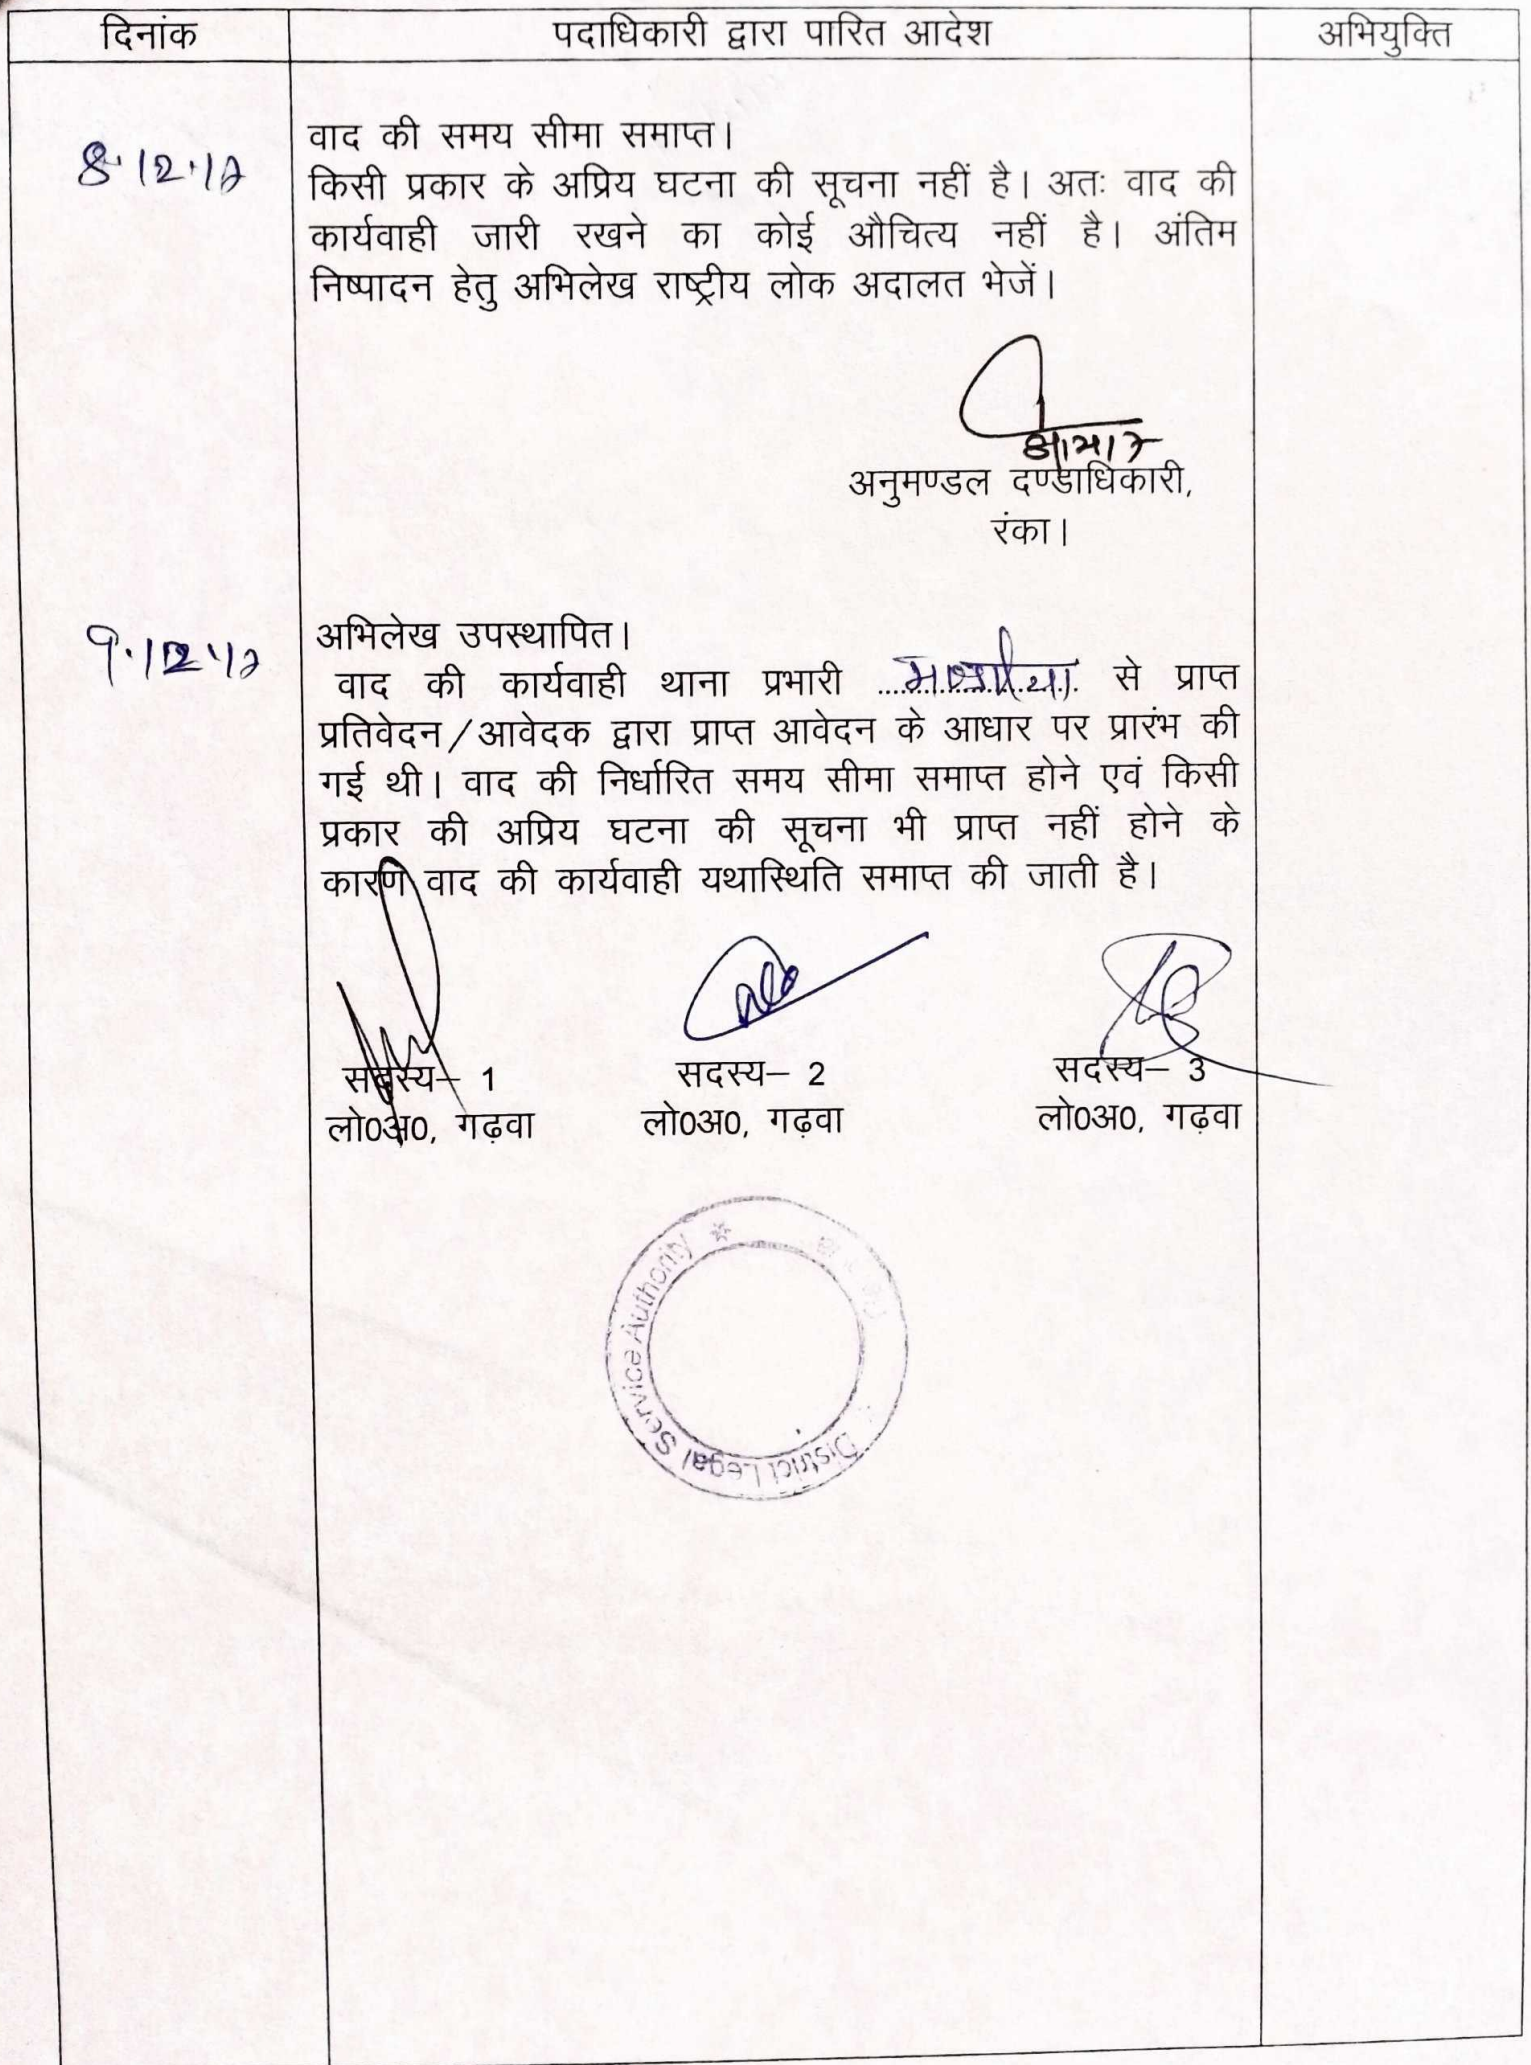 दिनांक पदाधिकारी द्वारा पारित आदेश अभियुक्ति
वाद की समय सीमा समाप्त।
8.12.17 किसी प्रकार के अप्रिय घटना की सूचना नहीं है। अतः वाद की
कार्यवाही जारी रखने का कोई औचित्य नहीं है। अंतिम
निष्पादन हेतु अभिलेख राष्ट्रीय लोक अदालत भेजें।
अनुमण्डल दण्डाधिकारी,
रंका।
9.12.17 अभिलेख उपस्थापित।
वाद की कार्यवाही थाना प्रभारी से प्राप्त
प्रतिवेदन/आवेदक द्वारा प्राप्त आवेदन के आधार पर प्रारंभ की
गई थी। वाद की निर्धारित समय सीमा समाप्त होने एवं किसी
प्रकार की अप्रिय घटना की सूचना भी प्राप्त नहीं होने के
कारण वाद की कार्यवाही यथास्थिति समाप्त की जाती है।
सदस्य– 1 सदस्य– 2 सदस्य– 3
लो0अ0, गढ़वा लो0अ0, गढ़वा लो0अ0, गढ़वा
District Legal Service Authority *